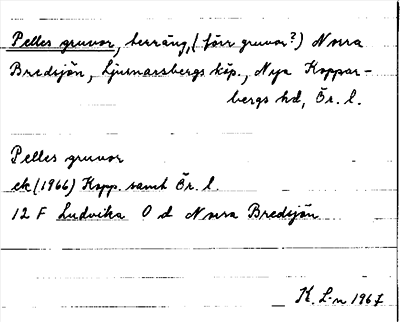 Pelles gruvor, terräng, (förr gruvor?) Norra
Bredsjön, Ljusnarsbergs köp., Nya Koppar-
bergs hd, Ör. l.
Pelles gruvor
ek (1966) Kopp. samt Ör. l.
12 F Ludvika O d Norra Bredsjön
K. L-n 1967